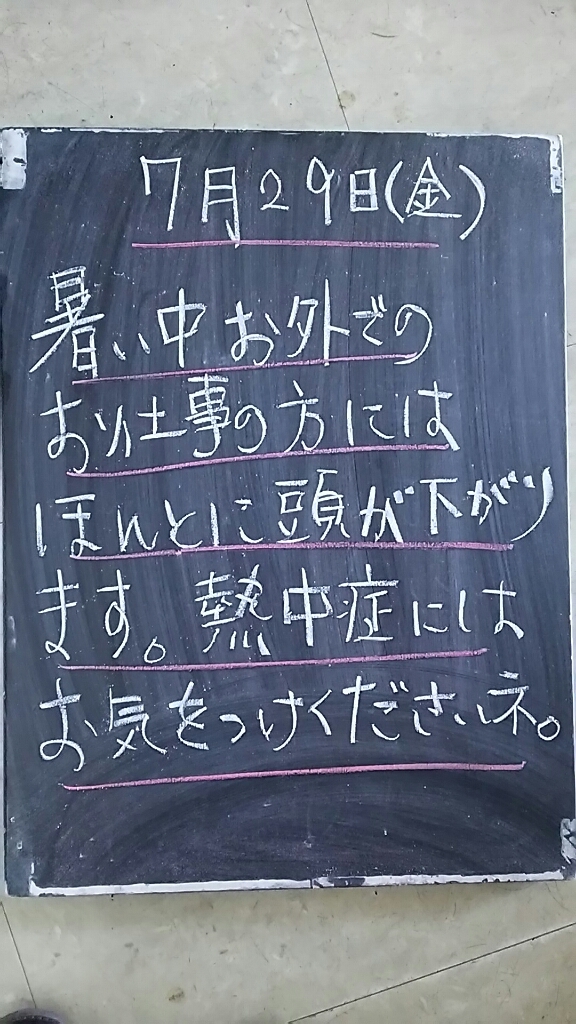 7月29日(金)
暑い中お外での
お仕事の方には
ほんとに頭が下がり
ます。熱中症には
お気をつけくださいネ。